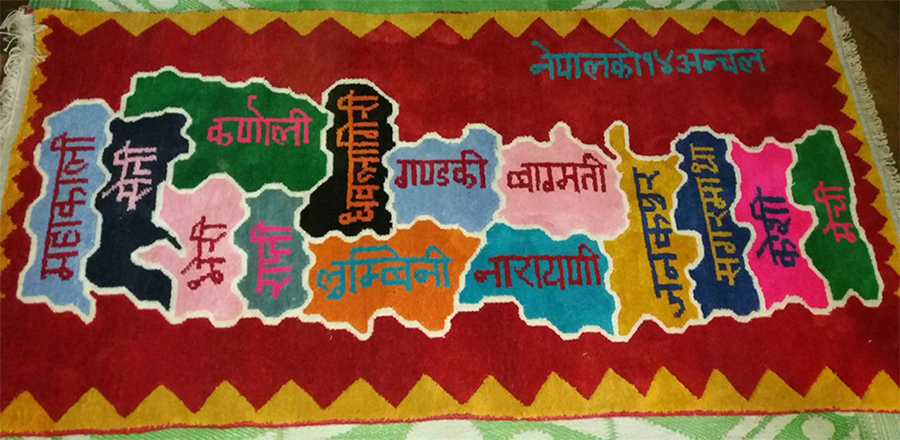 नेपालको१४अन्चल
महाकाली
सेती
कर्णाली
भेरी
राप्ती
धवलागिरी
लुम्बिनी
गण्डकी
वाग्मती
नारायणी
जनकपुर
सगरमाथा
कोशी
मेची